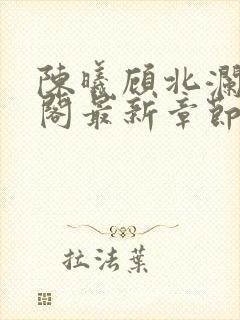 陳曦顧北瀾
閣最新章節
拉法葉